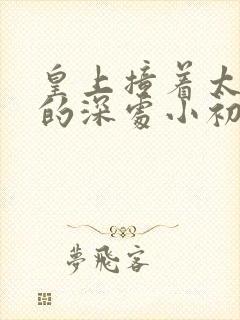 皇上撞着太
的深处小初
夢飛客